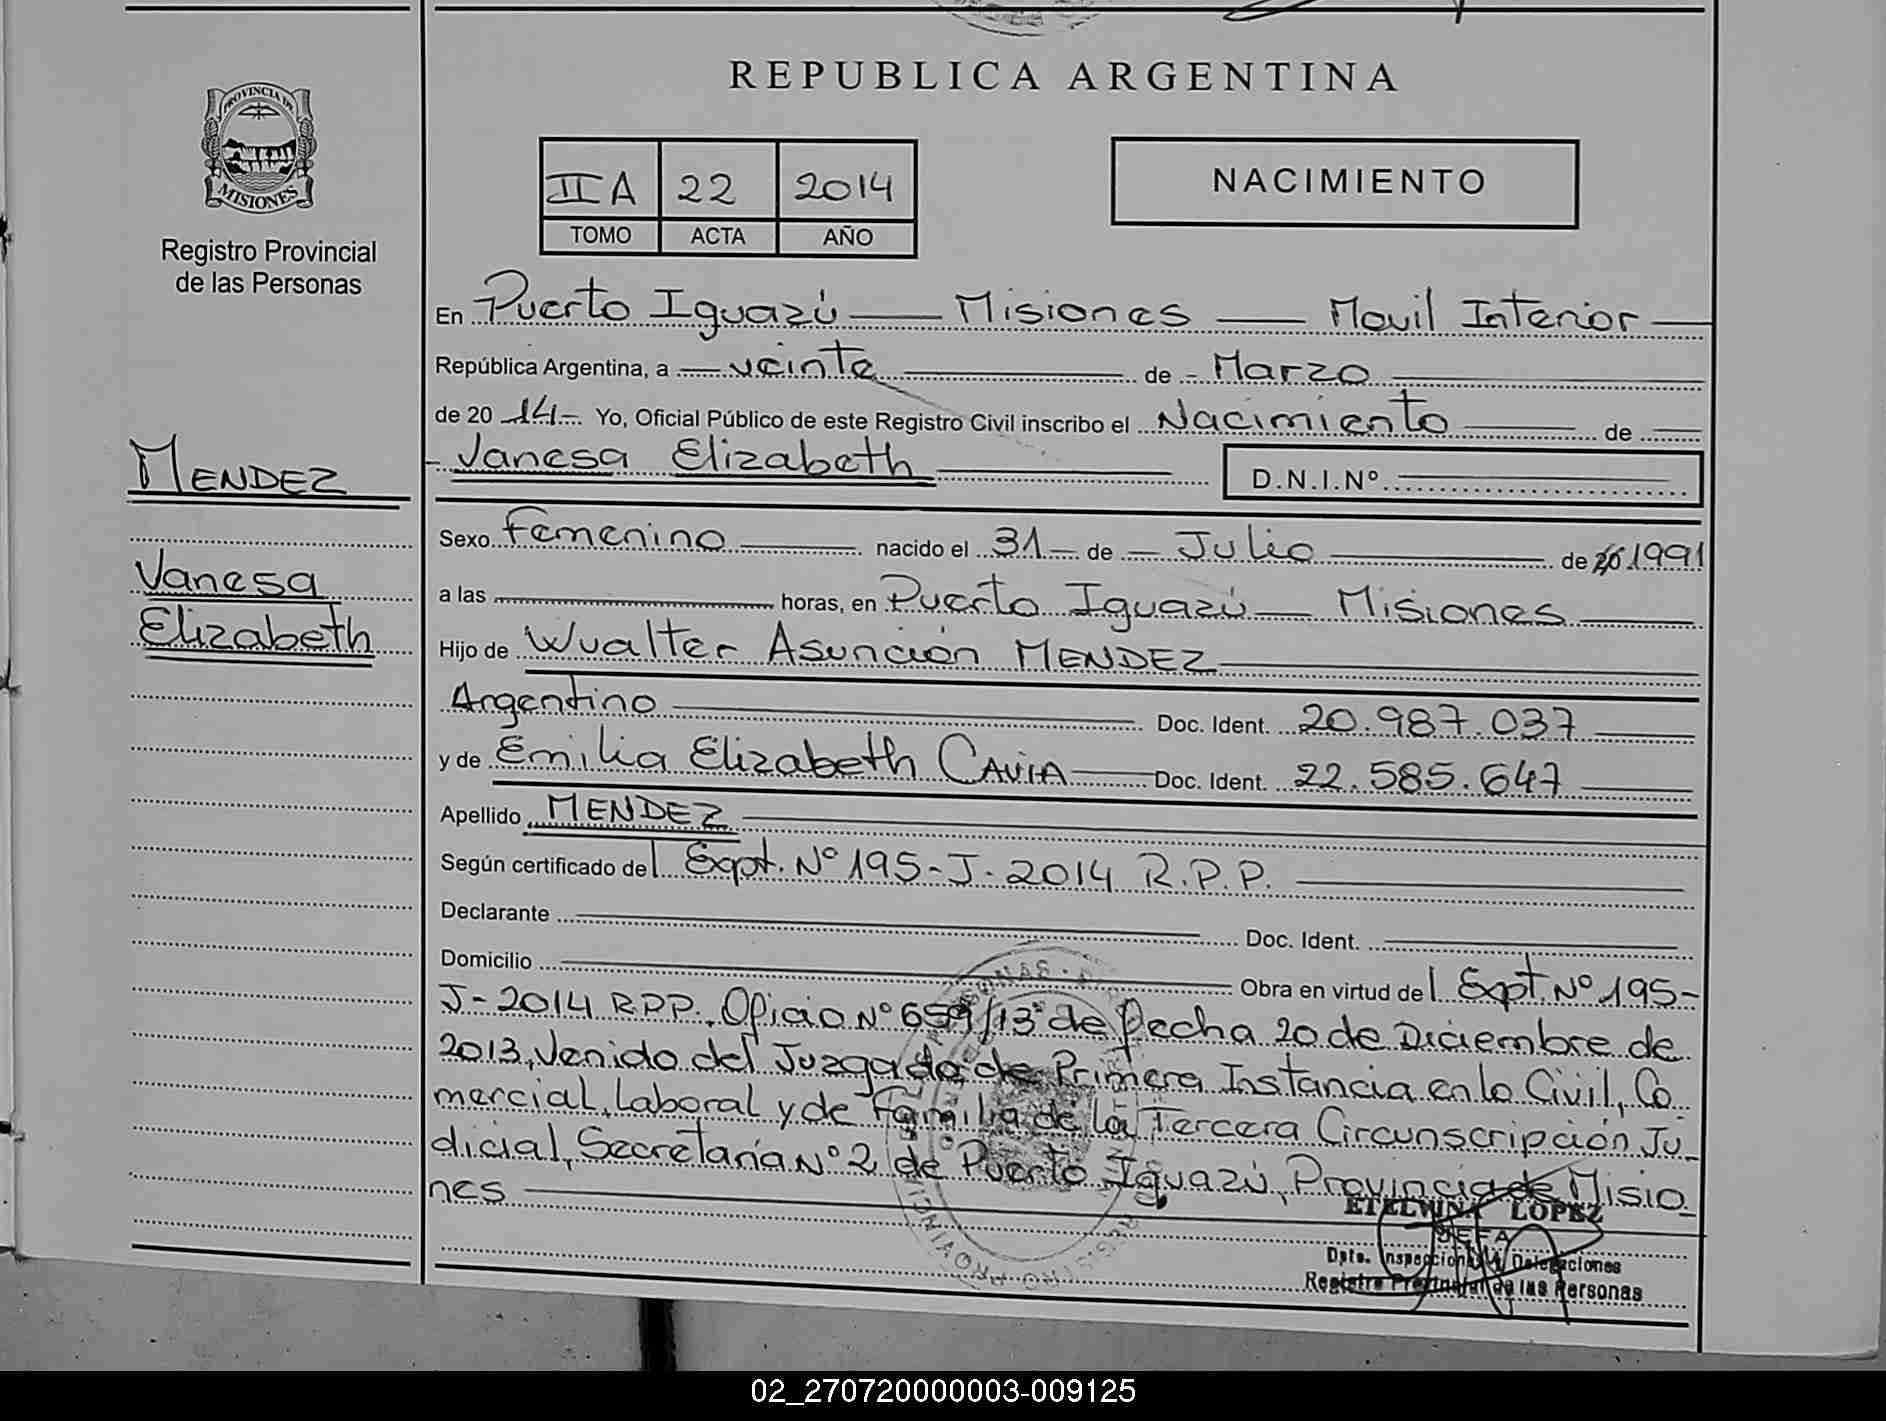 REPUBLICA ARGENTINA
PROVINCIA DE
MISIONES
Registro Provincial
de las Personas
IIA 22 2014
TOMO ACTA AÑO
NACIMIENTO
MENDEZ
Vanesa
Elizabeth
En Puerto Iguazú — Misiones — Movil Interior —
República Argentina, a — veinte — de - Marzo —
de 20 14- Yo, Oficial Público de este Registro Civil inscribo el Nacimiento — de
- Vanesa Elizabeth — D.N.I.Nº —
Sexo Femenino — nacido el 31 — de — Julio — de 20 1991
a las — horas, en Puerto Iguazú — Misiones —
Hijo de Wualter Asunción MENDEZ —
Argentino — Doc. Ident. 20.987.037 —
y de Emilia Elizabeth CAVIA — Doc. Ident. 22.585.647 —
Apellido MENDEZ —
Según certificado del Expt. Nº 195-J-2014 R.P.P. —
Declarante — Doc. Ident. —
Domicilio — Obra en virtud del Expt. Nº 195-
J-2014 R.P.P., Oficio Nº /13 de fecha 20 de Diciembre de
2013, Venido del Juzgado de Primera Instancia en lo Civil, Co
mercial, Laboral y de Familia de la Tercera Circunscripción Ju_
dicial, Secretaría Nº 2 de Puerto Iguazú, Provincia de Misio_
nes —
ETELVINA LOPEZ
JEFA
Dpto. Inspección y Delegaciones
Registro Provincial de las Personas
02_270720000003-009125